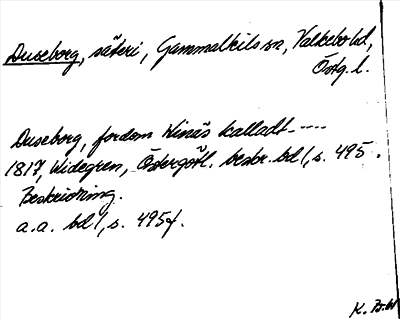 Duseborg, säteri, Gammalkils sn, Valkebo hd,
Östg. l.
Duseborg, fordom Winäs kalladt ----
1817, Widegren, Östergötl. beskr. bd 1, s. 495.
Beskrivning.
a.a. bd 1, s. 495f.